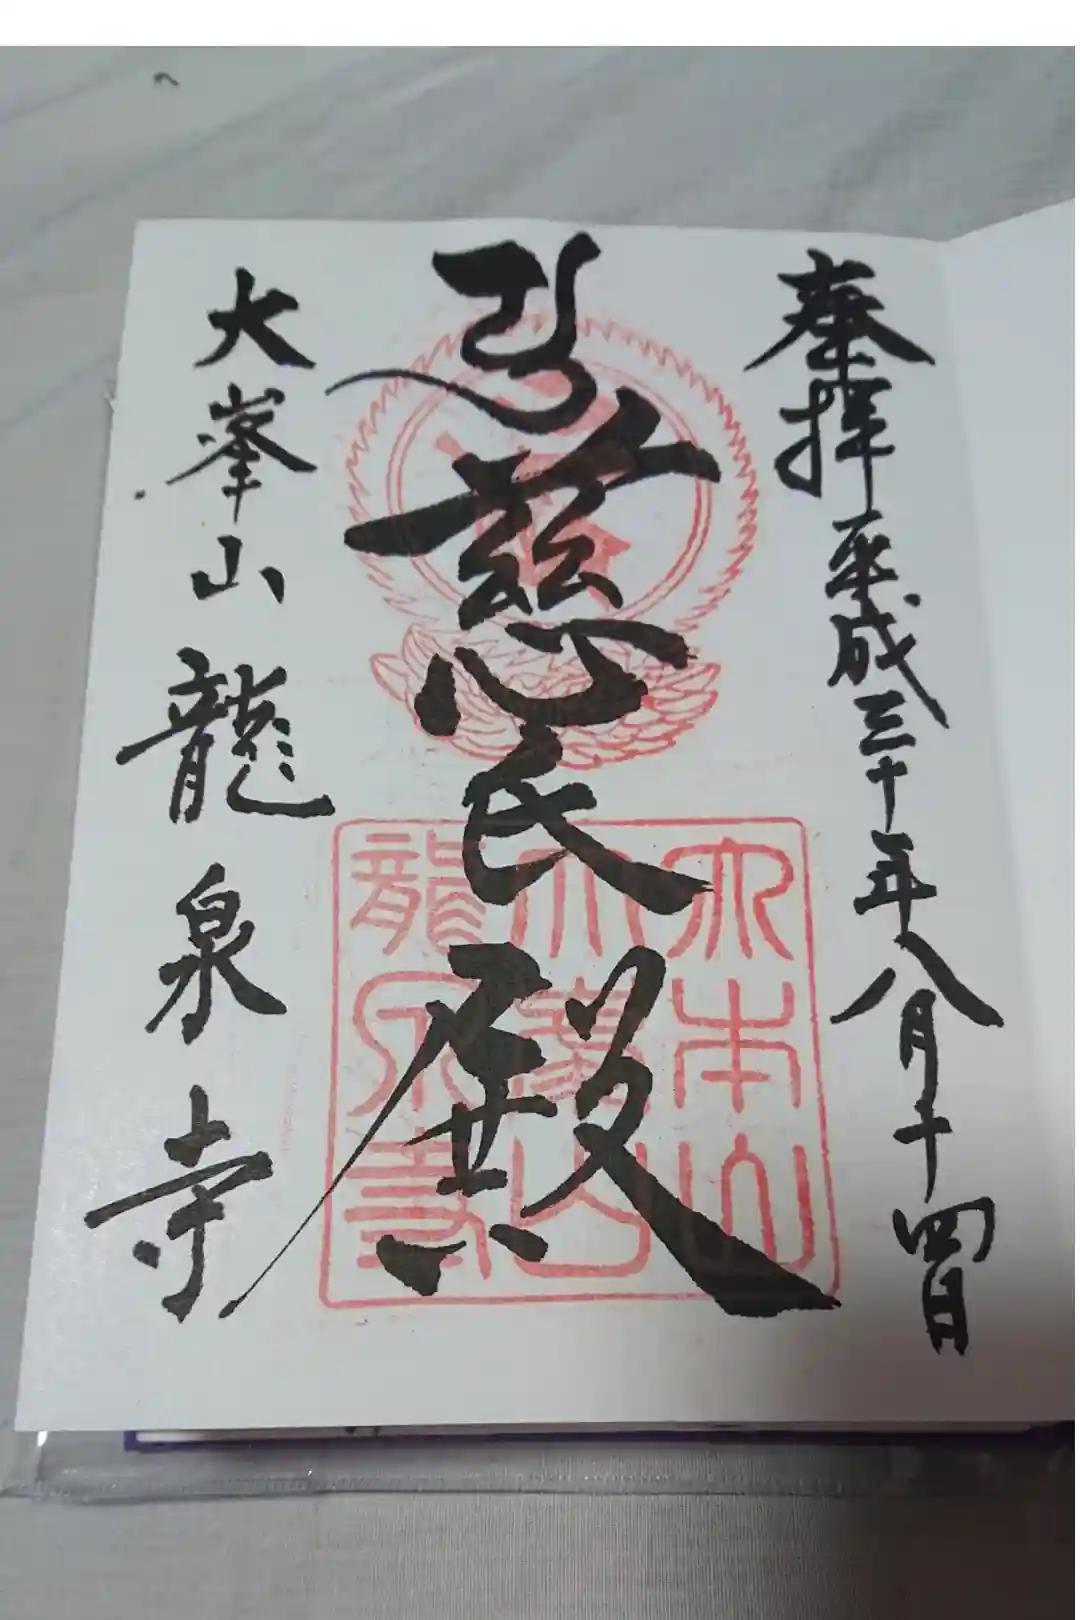 奉拝 平成三十年八月十四日
慈氏殿
大峯山 龍泉寺
大本山
大峯山
龍泉寺